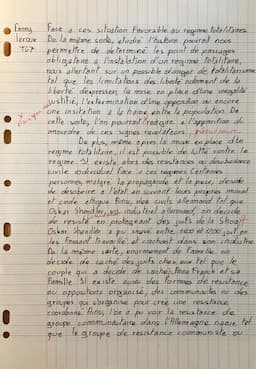 Fanny
Leroux
TG7
Face a ces situation favorable au regime totalitaires
De la même sorte, etudié l'histoire pourrait nous
permettre de determiné les point de passages
obligatoire a l'instalation d'un regime totalitaire,
nous alertant sur un possible danger de totalitarisme
tel que les limitations des liberté notamment de la
liberté d'expression, la mise en place d'une inégalité
justifié, l'extermination d'une opposition ou encore
une incitation a la haine entre la population. De
cette sorte, l'on pourrait l'apparition du
moindre de ces signes
De plus, même apres la mise en place d'un
regime totalitaire, il est possible de lutté contre le
regime. Il existe alors des resistances ou desobeissance
civile individuel face a ces regimes. Certaines
personnes, malgré la propagande et la peur, decide
de desobeire a l'état en suivant leurs propres moral
et code éthique. Ainsi, des civils allemand tel que
Oskar Shindler, industriel allemand, on decidé
de resisté en protegeant des juifs de la Shoah
Oskar Shindler a pu sauvé entre 1000 et 1200 juif en
les faisant travaillé et cachant dans son industrie
De la même sorte, enormement de famille on
decidé de caché des juifs chez eux tel que le
couple qui a decidé de caché Anne Frank et sa
famille. Il existe aussi des formes de resistance
ou oppositions organisé, des communautés ou des
groupes qui s'organise pour créé une resistance
coordonné. Ainsi, l'on a pu voir la resistance de
groupe communautaire dans l'Allemagne nazie tel
que le groupe de resistance communiste ou